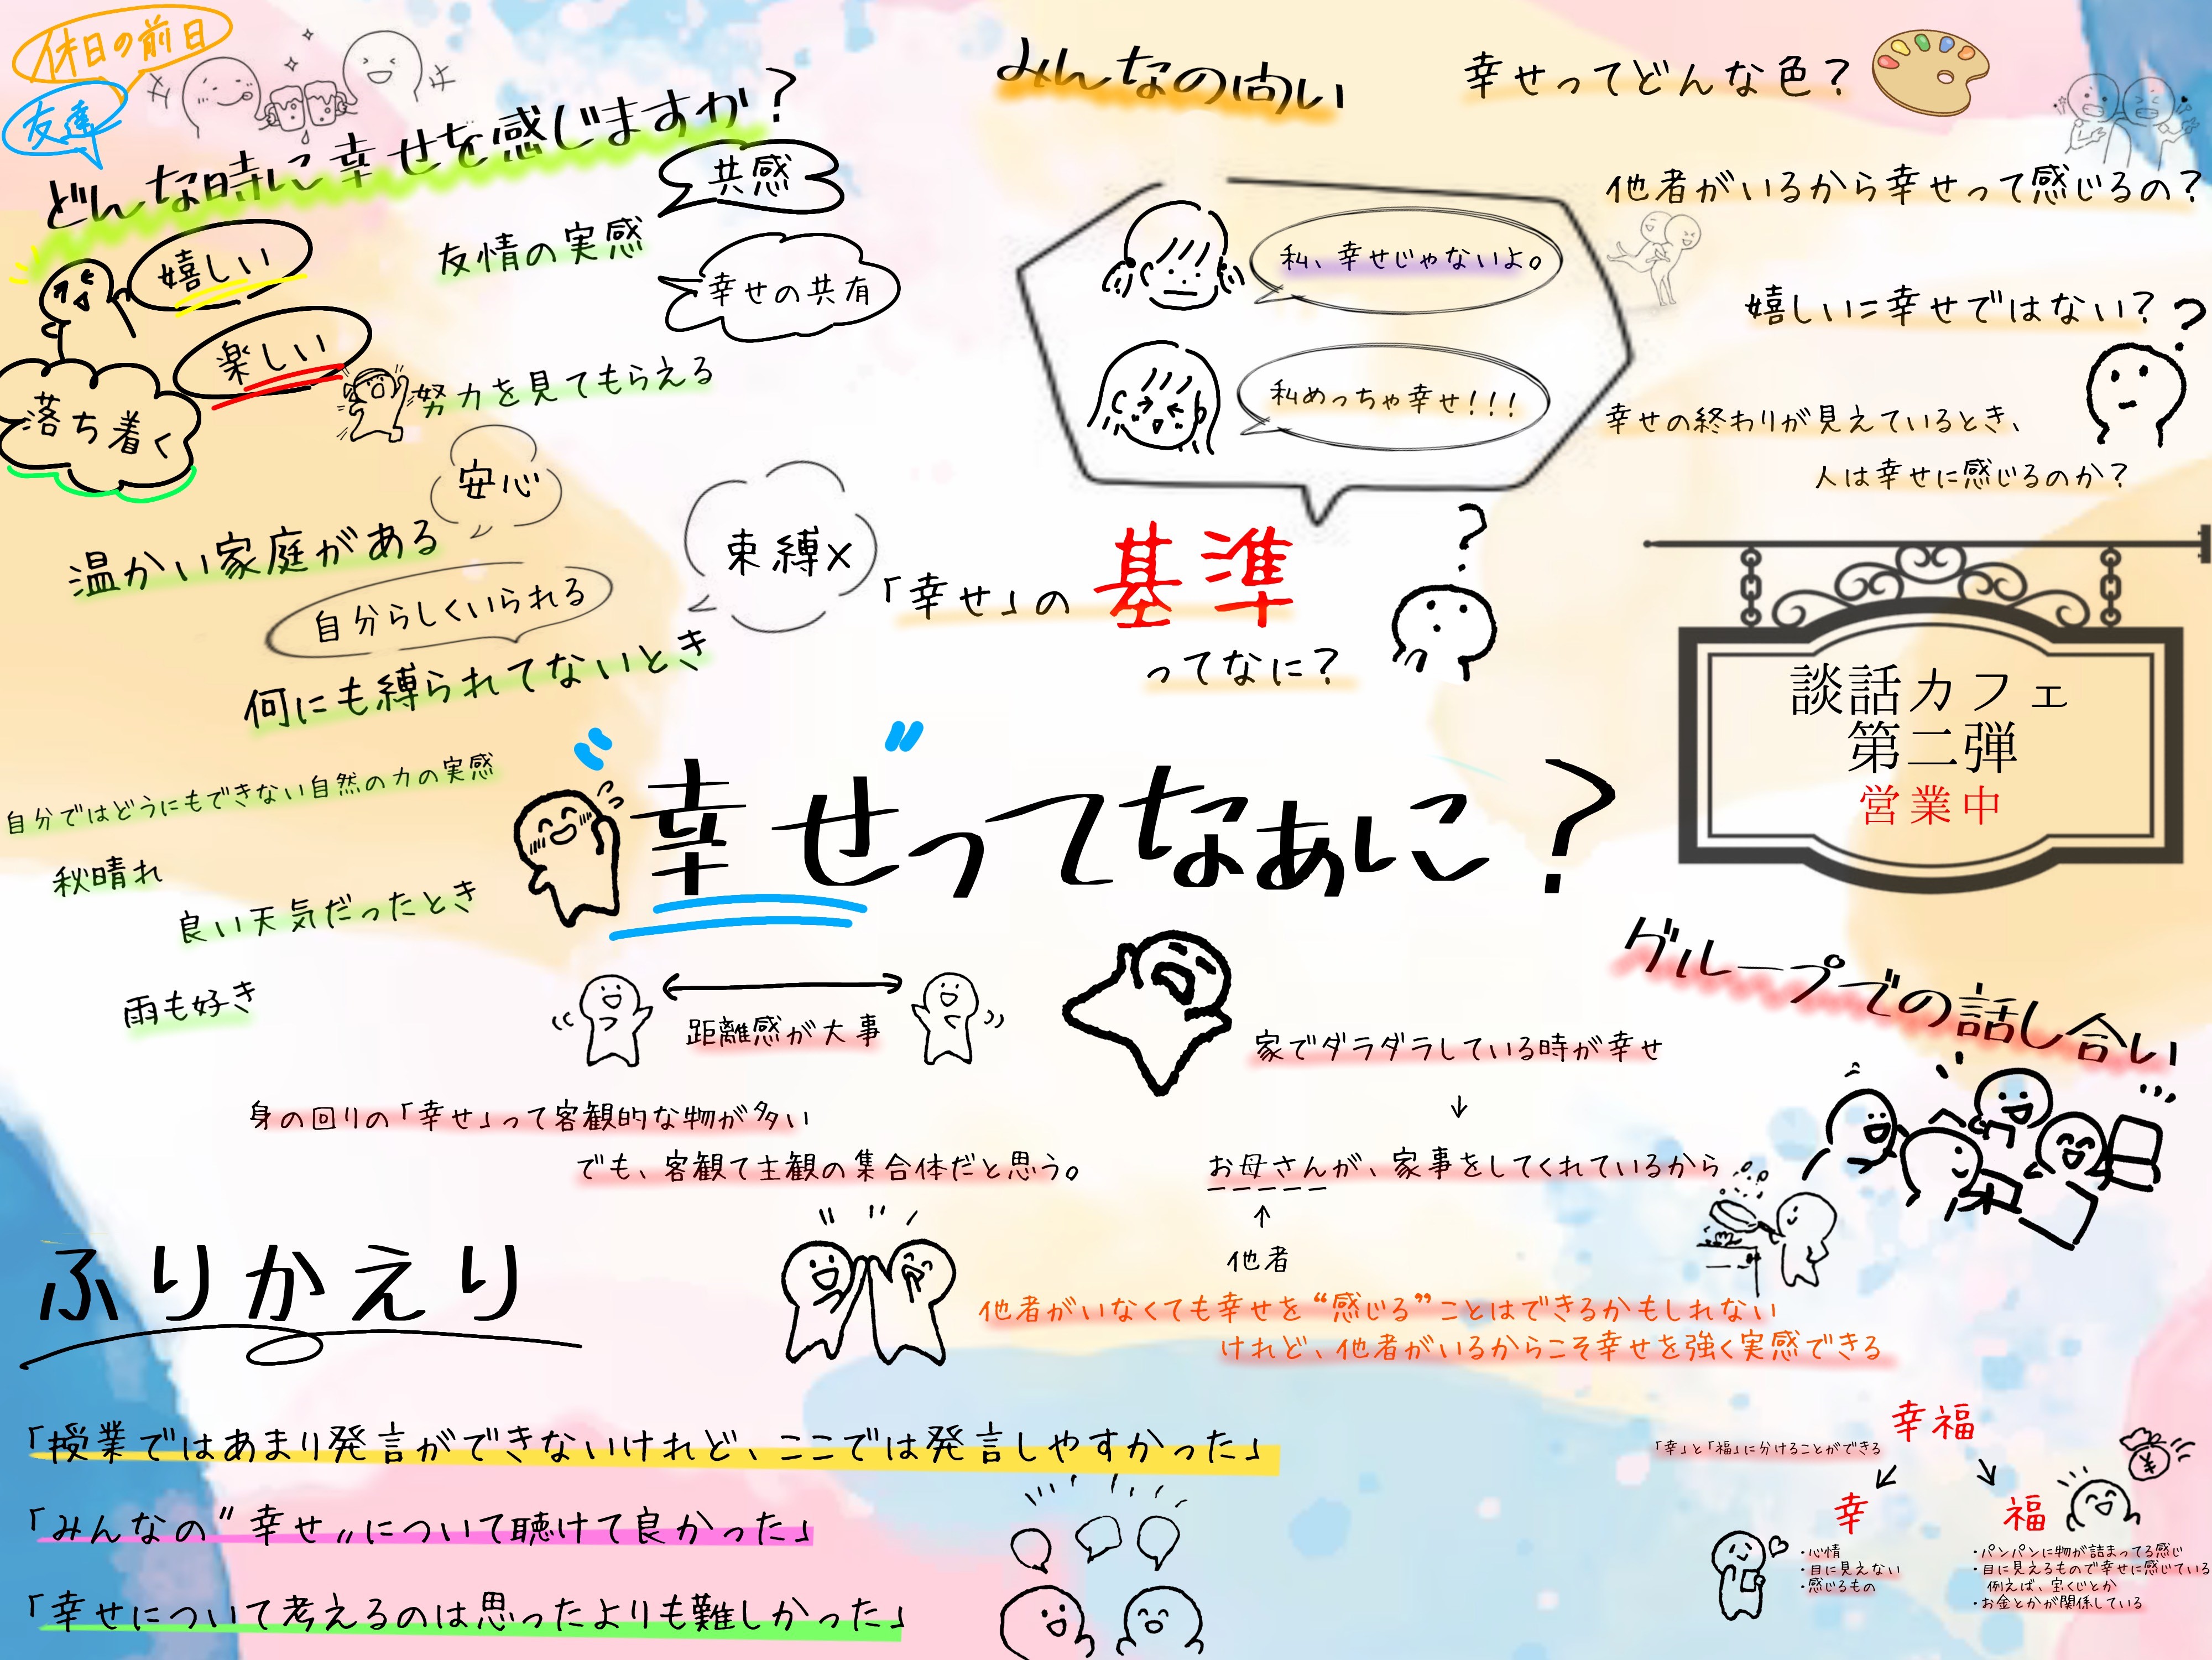 休日の前日
友達
どんな時に幸せを感じますか？
嬉しい
楽しい
落ち着く
共感
友情の実感
幸せの共有
努力を見てもらえる
安心
温かい家庭がある
自分らしくいられる
束縛×
何にも縛られてないとき
自分ではどうにもできない自然の力の実感
秋晴れ
良い天気だったとき
雨も好き
みんなの問い
幸せってどんな色？
他者がいるから幸せって感じるの？
私、幸せじゃないよ。
私めっちゃ幸せ！！！
嬉しい＝幸せではない？
？
幸せの終わりが見えているとき、
人は幸せに感じるのか？
「幸せ」の基準
ってなに？
？
談話カフェ
第二弾
営業中
〝幸せ〟ってなぁに？
グループでの話し合い
距離感が大事
身の回りの「幸せ」って客観的な物が多い
でも、客観て主観の集合体だと思う。
家でダラダラしている時が幸せ
↓
お母さんが、家事をしてくれているから
↑
他者
他者がいなくても幸せを“感じる”ことはできるかもしれない
けれど、他者がいるからこそ幸せを強く実感できる
幸福
「幸」と「福」に分けることができる
幸
・心情
・目に見えない
・感じるもの
福
¥
・パンパンに物が詰まってる感じ
・目に見えるもので幸せに感じている
例えば、宝くじとか
・お金とかが関係している
ふりかえり
「授業ではあまり発言ができないけれど、ここでは発言しやすかった」
「みんなの〝幸せ〟について聴けて良かった」
「幸せについて考えるのは思ったよりも難しかった」